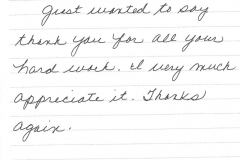 Just wanted to say
thank you for all your
hard work. I very much
appreciate it. Thanks
again.